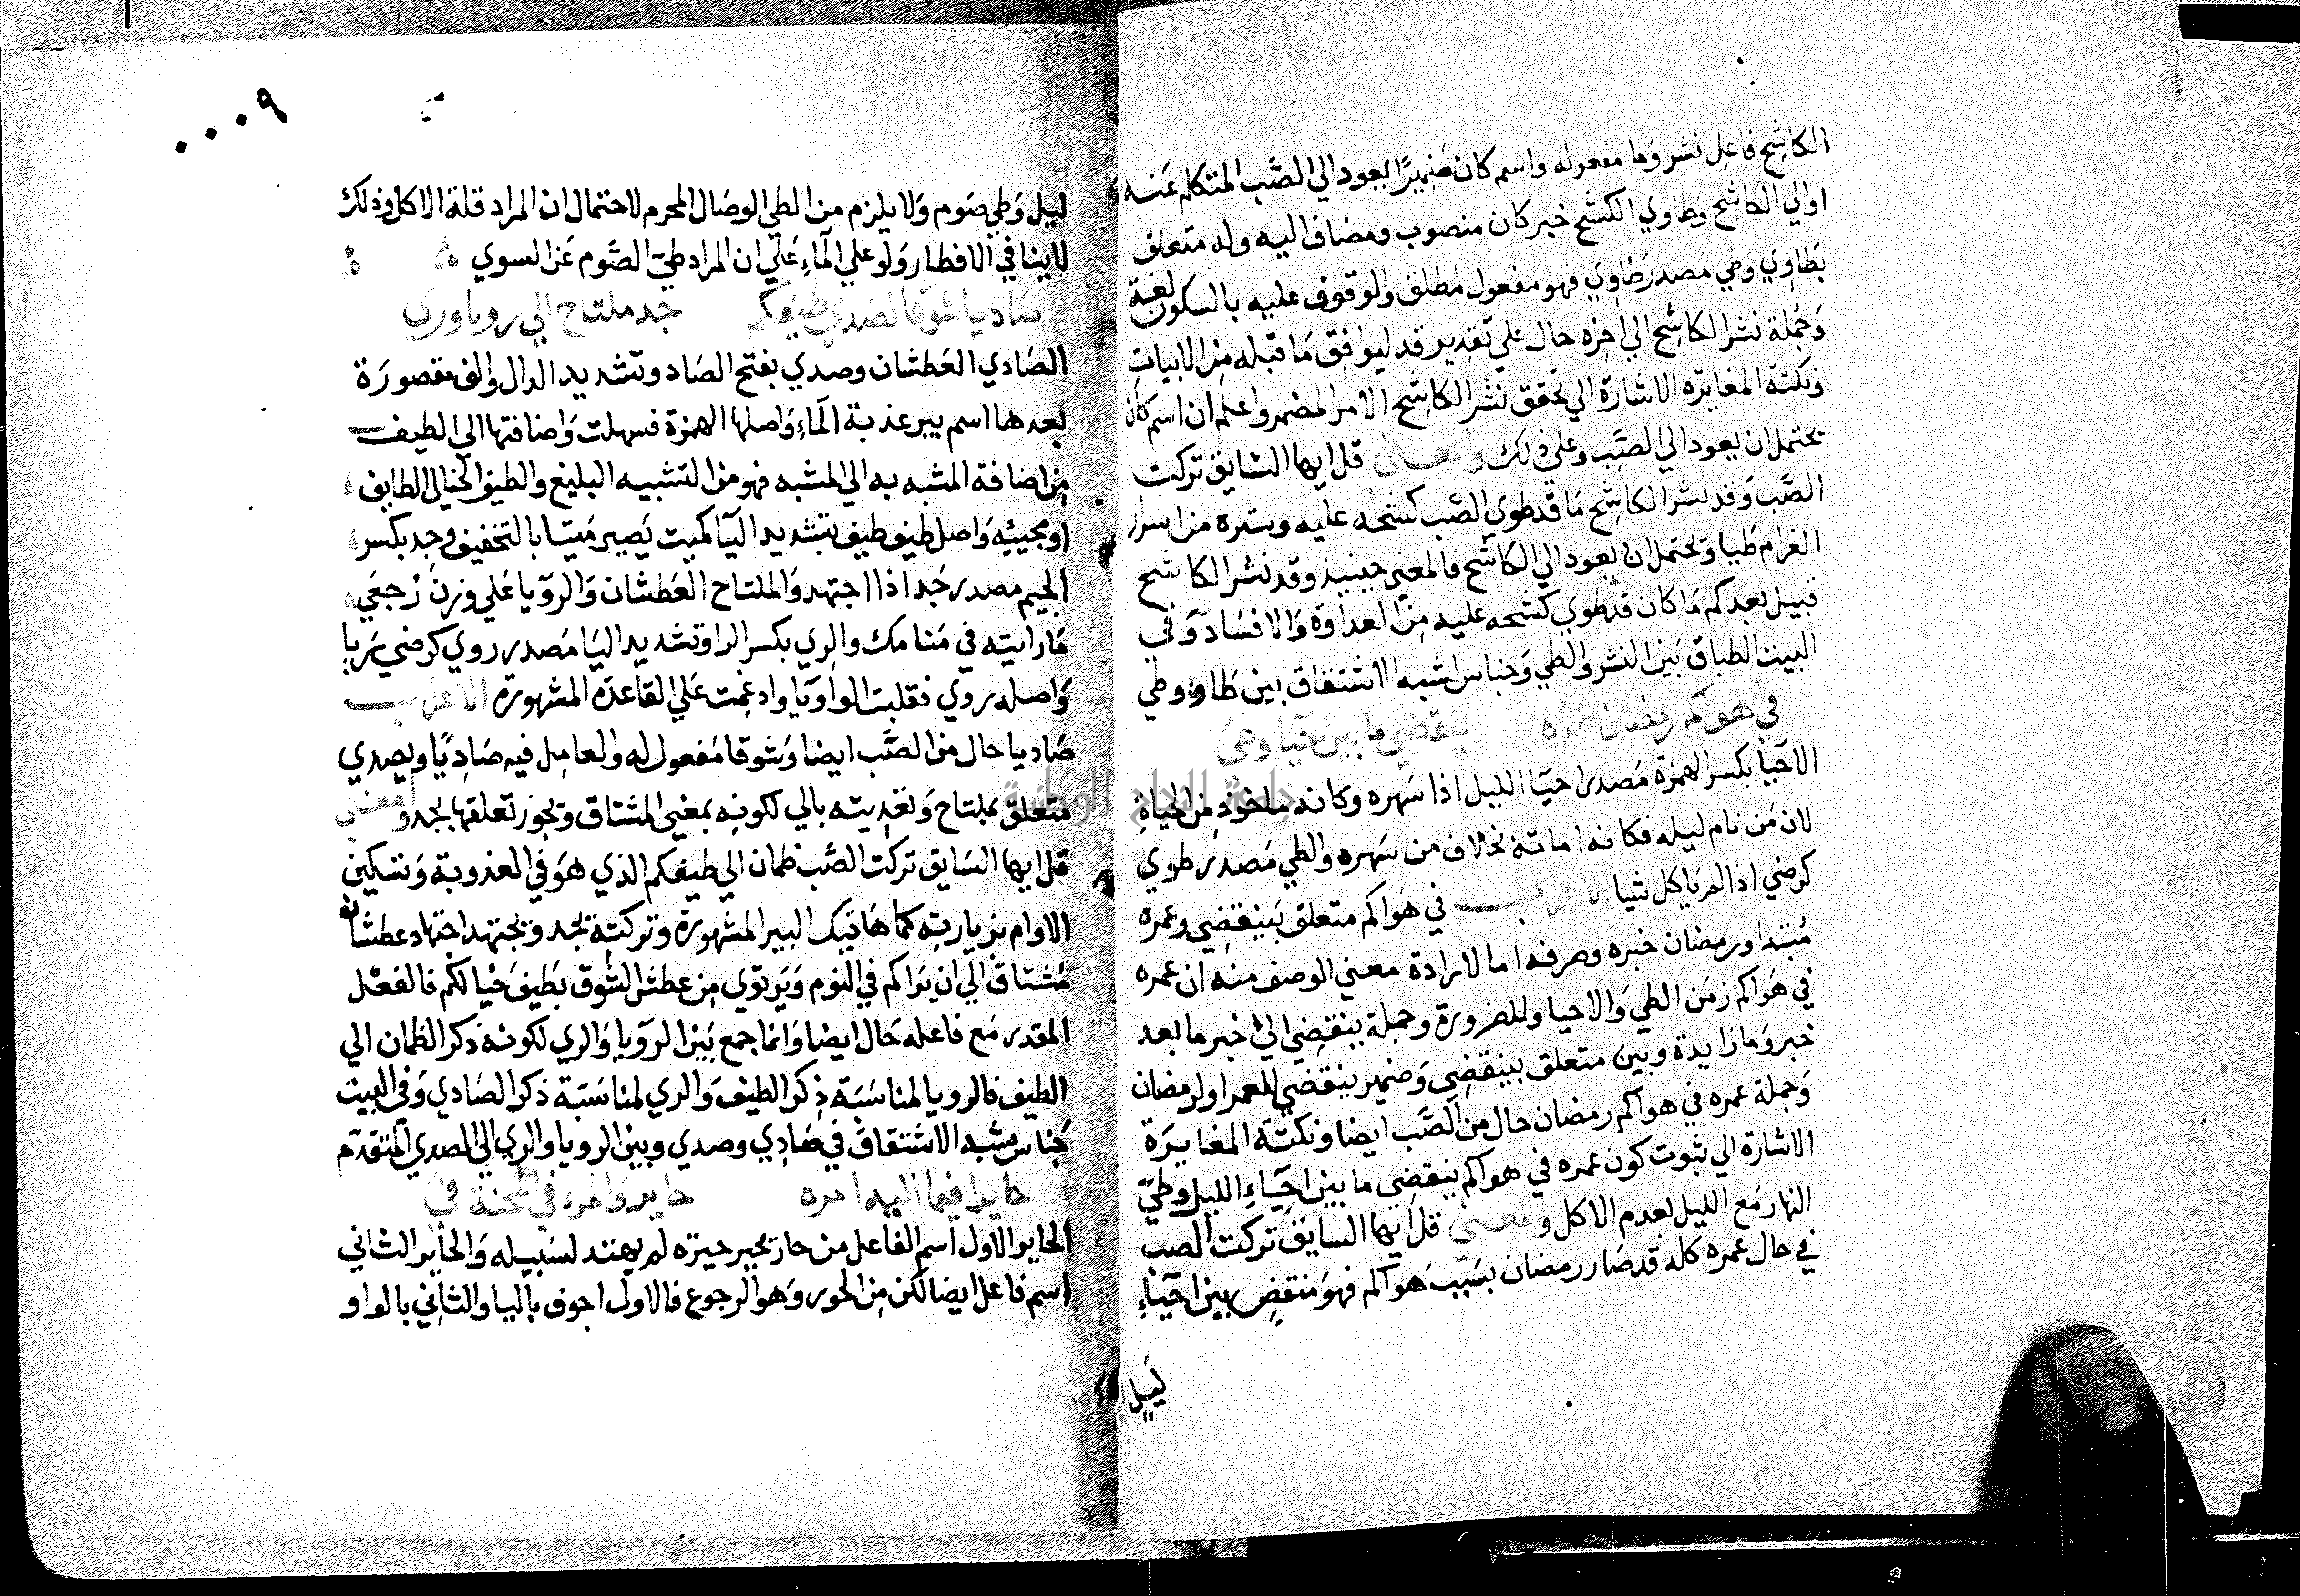 الكاشح فاعل نشر وما مفعوله واسم كان ضميرًا يعود الي الصَّب المتكلم عنه
اوالي الكاشح وطاوي الكشح خبر كان منصوب ومضاف اليه وله متعلق
بطاوي وطي مصدر طاوي فهو مفعول مطلق والوقوف عليه بالسكون لغة
وجملة نشر الكاشح الي اخره حال علي تقدير قد ليوافق ما قبله من الابيات
ونكتة المغايره الاشارة الي تحقق نشر الكاشح الامر المضمر واعلم ان اسم كان
يحتمل ان يعود الي الصَّب وعلي ذلك والمعني قل ايها السايق تركت
الصَّب وقد نشر الكاشح ما قد طوي الصَّب كشحه عليه وستره من اسرار
الغرام طيا ويحتمل ان يعود الي الكاشح فالمعني حينيذ وقد نشر الكاشح
قبيل بعدكم ما كان قد طوي كشحه عليه من العداوة والافساد وفي
البيت الطباق بين النشر والطي وجناس اشبه الاشتقاق بين طاو وطي
في هواكم رمضان عمره ينقضي ما بين احيا وطي
الاحيا بكسر الهمزة مصدر احيا الليل اذا سهره وكانه ماخوذ من الحياة
لان من نام ليله فكانه اماته بخلاف من سهره والطي مصدر طوي
كرضي اذا لم ياكل شيا الاعراب في هواكم متعلق بينقضي وعمره
مبتدا ورمضان خبره وصرفه اما لارادة معني الوصف منه ان عمره
في هواكم زمن الطي والاحيا وللضرورة وجملة ينقضي الي خبر ما بعد
خبر وما زايدة وبين متعلق بينقضي وضمير ينقضي للعمر اولرمضان
وجملة عمره في هواكم رمضان حال من الصَّب ايضا ونكتة المغايرة
الاشارة الي ثبوت كون عمره في هواكم ينقضي ما بين احياء الليل وطي
النهار مع الليل لعدم الاكل والمعني قل ايها السايق تركت الصب
في حال عمره كله قد صار رمضان بسبب هواكم فهو منقض بين احياء
ليل
٠٠٠٩
ليل وطي صوم ولا يلزم من الطي الوصال المحرم لاحتمال ان المراد قلة الاكل وذلك
لا ينافي الافطار ولو علي الماء علي ان المراد طي الصوم عن السوي
صاديا شوقا لصدي طيفكم جد ملتاح الي رويا وري
الصادي العطشان وصدي بفتح الصاد وتشديد الدال والف مقصورة
بعدها اسم بير عذبة الماء واصلها الهمزة فسهلت واضافتها الي الطيف
من اضافة المشبه به الي المشبه فهو من التشبيه البليغ والطيف الخيال الطايف
او مجييه واصل طيف طيف بتشديد اليا كميت يصير ميتا بالتخفيف وجد بكسر
الجيم مصدر جد اذا اجتهد والملتاح العطشان والرويا علي وزن رجعي
ما رايته في منامك والري بكسر الرا وتشديد اليا مصدر روي كرضي يريا
واصله روي فقلبت الواو يا وادغمت علي القاعدة المشهورة الاعراب
صاديا حال من الصَّب ايضا وشوقا مفعول له والعامل فيه صاديًا ويصدي
متعلق بملتاح وتعديته بالي لكونه بمعني المشتاق ويجوز تعلقها بجد والمعني
قل ايها السايق تركت الصَّب ظمان الي طيفكم الذي هو في العذوبة وتسكين
الاوام بزيارته كما هاتيك البير المشهورة وتركته يجد ويجتهد اجتهاد عطشان
مشتاق الي ان يراكم في النوم ويرتوي من عطش الشوق بطيف خيالكم فالفعل
المقدر مع فاعله حال ايضا وانما جمع بين الرويا والري لكونه ذكر الظمان الي
الطيف فالرويا لمناسبة ذكر الطيف والري لمناسبة ذكر الصادي وفي البيت
جناس شبه الاشتقاق في صادي وصدي وبين الرويا والري الي المصدي المتقدم
حايرا فيما اليه امره حاير والمرء في المحنة في
الحاير الاول اسم الفاعل من حار يحير حيرة لم يهتد لسبيله والحاير الثاني
اسم فاعل ايضا لكن من الحور وهو الرجوع فالاول اجوف باليا والثاني بالواو